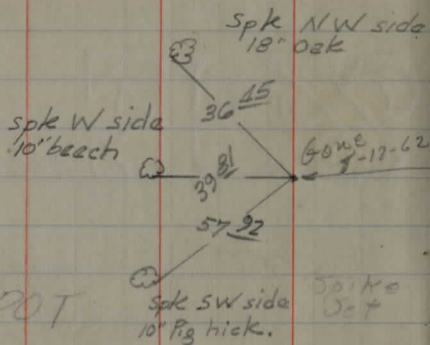 spk NW side
18" Oak
36 45
spk W side
10" beach
Gone
-17-62
39 81
57 92
spk SW side
10" Pig hick.
Spike
Set